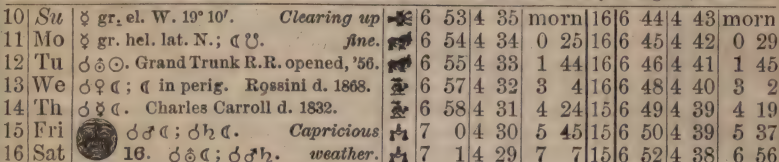 10 Su ☿ gr. el. W. 19° 10'. Clearing up 6 53 4 35 morn 16 6 44 4 43 morn
11 Mo ☿ gr. hel. lat. N.; ☾ ☋. fine. 6 54 4 34 0 25 16 6 45 4 42 0 29
12 Tu ☌ ♅ ☉. Grand Trunk R.R. opened, '56. 6 55 4 33 1 44 16 6 46 4 41 1 45
13 We ☌ ♀ ☾; ☾ in perig. Rossini d. 1868. 6 57 4 32 3 4 16 6 48 4 40 3 2
14 Th ☌ ☿ ☾. Charles Carroll d. 1832. 6 58 4 31 4 24 15 6 49 4 39 4 19
15 Fri ☌ ♂ ☾; ☌ ♄ ☾. Capricious 7 0 4 30 5 45 15 6 50 4 39 5 37
16 Sat 16. ☌ ♅ ☾; ☌ ♂ ♄. weather. 7 1 4 29 7 7 15 6 52 4 38 6 56